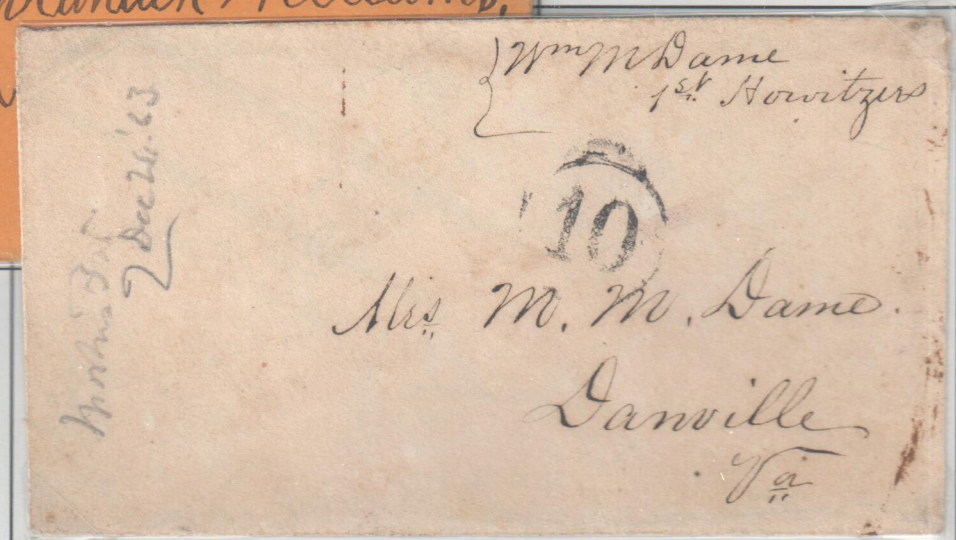 Wm M Dame
1st Howitzers
10
Mrs M. M. Dame.
Danville
Va
Dec 26. '63